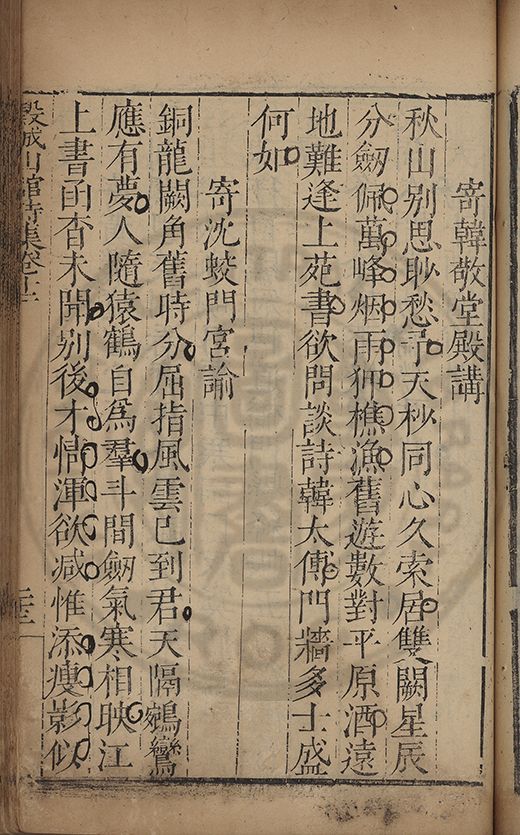 寄韓敬堂殿講
秋山別思眇愁予天杪同心久索居雙闕星辰
分劒佩萬峰烟雨狎樵漁舊遊數對平原酒遠
地難逢上苑書欲問談詩韓太傅門牆多士盛
何如
寄沈蛟門宮諭
銅龍闕角舊時分屈指風雲已到君天隔鵷鸞
應有夢人隨猿鶴自為羣斗間劒氣寒相映江
上書函杳未聞別後才情渾欲减惟添瘦影似
穀城山館詩集卷十二
二十三